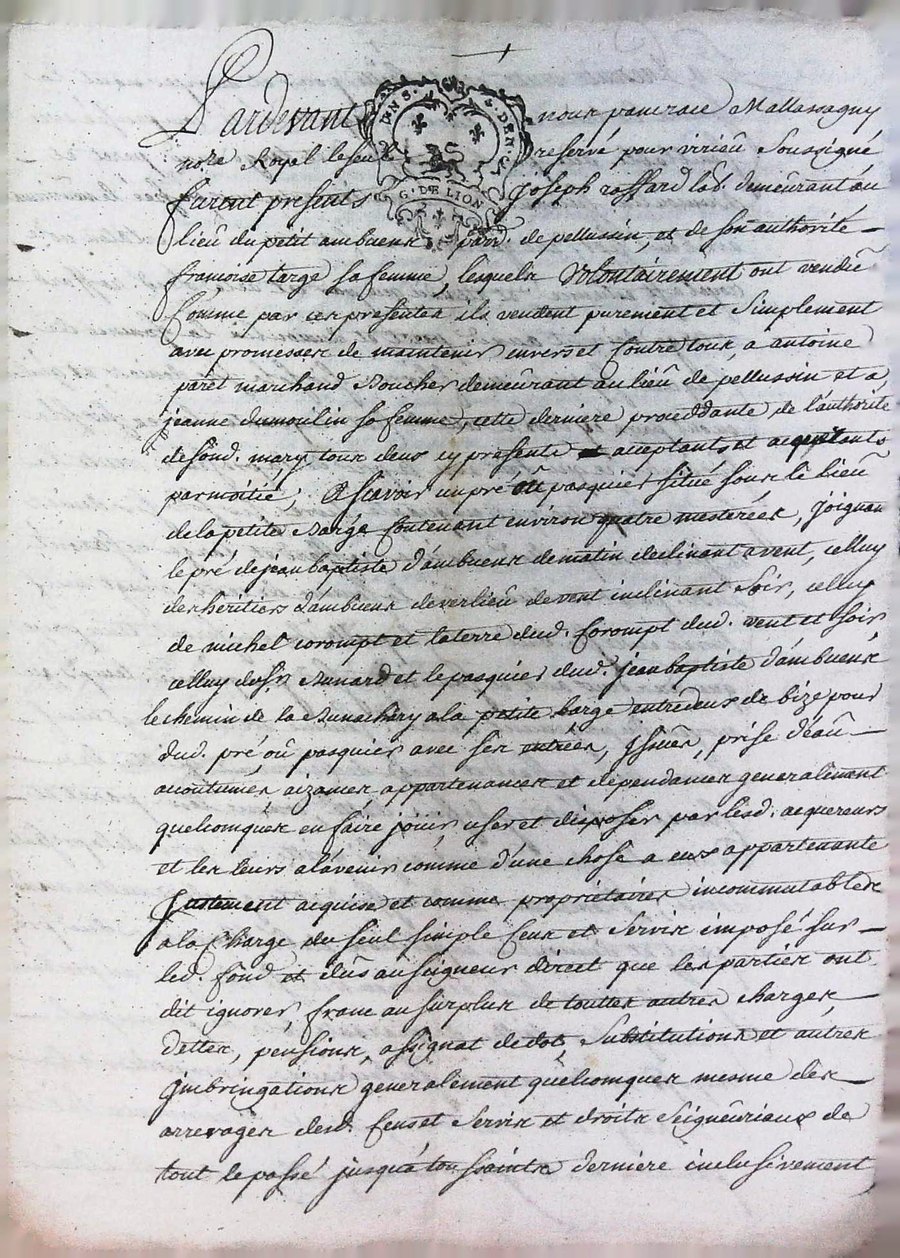 Pardevant nous pancrace Mallassagny
nore Royal le seul reservé pour virieu soussigné
furent presents Joseph roffard lab. demeurant au
lieu du petit ambueux parr. de pellussin, et de son authorité
françoise targe sa femme, lesquels volontairement ont vendu
comme par ces presentes ils vendent purement et simplement
avec promesses de maintenir envers et contre tous, a antoine
paret marchand Boucher demeurant au lieu de pellussin et a
jeanne dumoulin sa femme, cette derniere proceddante de l'authorité
de sond. mary tous deux cy presents acceptants et acquittants
par moitié; Asscavoir un pré ou pasquier situé sous le lieu
de la petite Barge contenant environ quatre mesterées, joignan
le pré de jean baptiste d'ambueux de matin declinant a vent, celluy
des heritiers d'ambueux de verlieu de vent inclinant soir, celluy
de michel corompt et la terre dud. Corompt dud. vent et soir
celluy de sr. Bunard et le pasquier dud. jean baptiste d'ambueux
le chemin de la Bunachery a la petite barge entredeux de bize pour
dud. pré ou pasquier avec ses entrées, yssues, prise d'eau
acoutumés aizances appartenances et dependances generalement
quelconques en faire jouir user et disposer par lesd. acquereurs
et les leurs a l'avenir comme d'une chose a eux appartenante
justement acquise et comme proprietaires incommutables
a la charge du seul simple Cens et Servis imposé sur
led. fond et dus au seigneur direct que les parties ont
dit ignorer franc au surplus de toutes autres charges
dettes, pensions, assignat de dot, substitutions et autres
jmbringations generalement quelconques mesme des
arrerages desd. Cens et servis et droits seigneuriaux de
tout le passé jusqu'a toussaints derniere inclusivement
G. DE LION